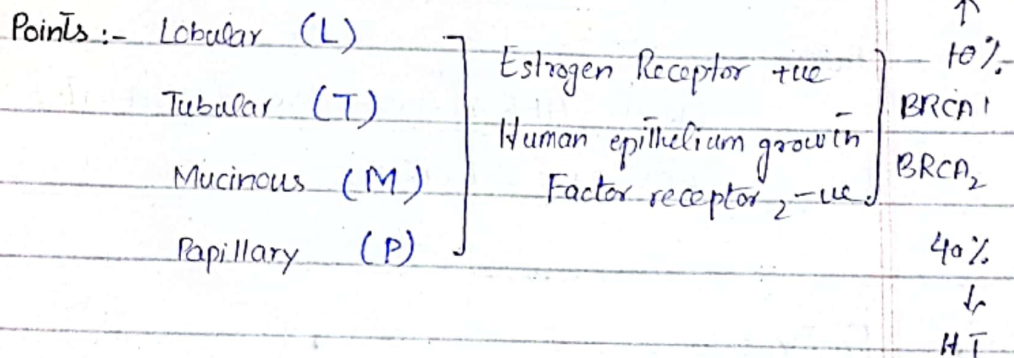 Points :- Lobular (L)
Tubular (T)
Mucinous (M)
Papillary (P)
Estrogen Receptor +ve
Human epithelium growth
Factor receptor 2 -ve
↑
10%
BRCA1
BRCA2
40%
↓
H.T